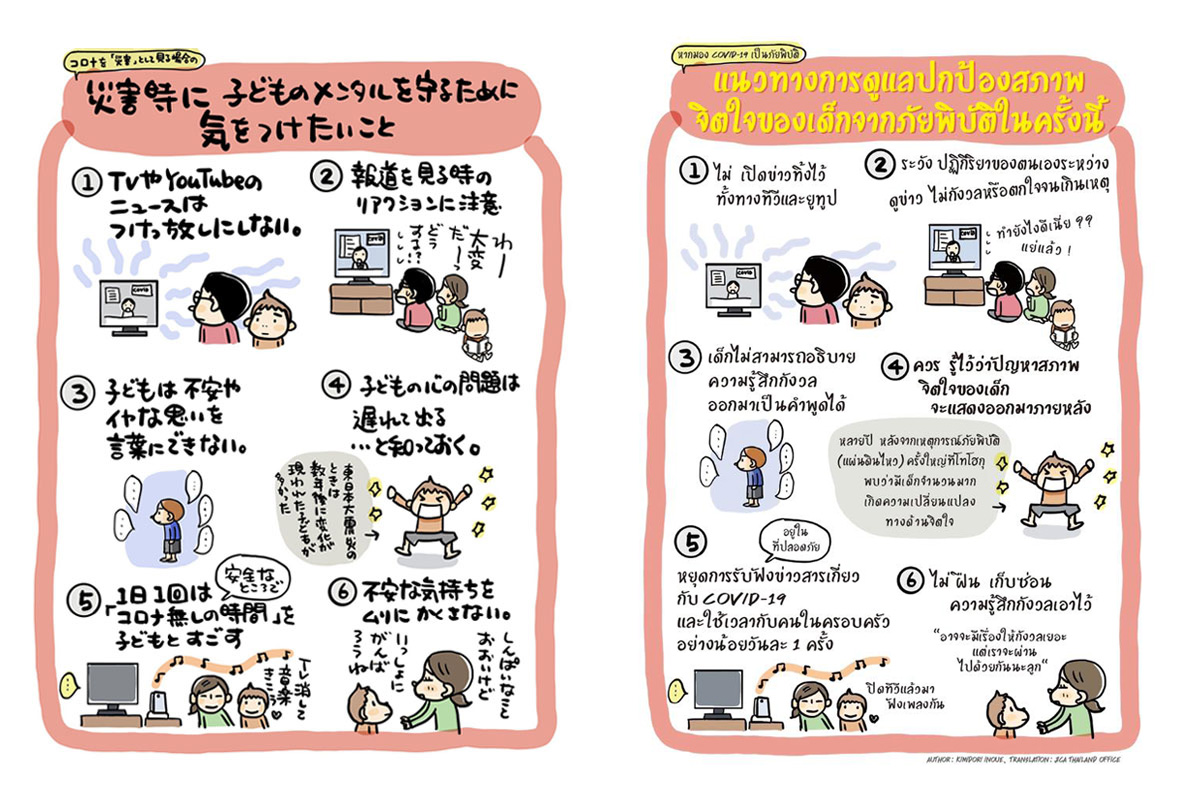 コロナを「災害」として見る場合の
災害時に 子どものメンタルを守るために
気をつけたいこと
① TVやYouTubeの
ニュースは
つけっ放しにしない。
② 報道を見る時の
リアクションに注意
COVID
COVID
わー
大変
だーっ
どう
する!?
③ 子どもは 不安や
イヤな思いを
言葉にできない。
④ 子どもの心の問題は
遅れて出る
…と知っておく。
東日本大震災の
ときは
数年後に変化が
現われた子どもが
多かった
⑤ 1日1回は
安全な
ところで
「コロナ無しの時間」を
子どもと すごす
⑥ 不安な気持ちを
ムリに かくさない。
TV消して
音楽
きこう
しんぱいなこと
おおいけど
いっしょに
がんば
ろうね
หากมอง COVID-19 เป็นภัยพิบัติ
แนวทางการดูแลปกป้องสภาพ
จิตใจของเด็กจากภัยพิบัติในครั้งนี้
① ไม่ เปิดข่าวทิ้งไว้
ทั้งทางทีวีและยูทูป
② ระวัง ปฏิกิริยาของตนเองระหว่าง
ดูข่าว ไม่กังวลหรือตกใจจนเกินเหตุ
COVID
COVID
ทำยังไงดีเนี่ย ??
แย่แล้ว !
③ เด็กไม่สามารถอธิบาย
ความรู้สึกกังวล
ออกมาเป็นคำพูดได้
④ ควร รู้ไว้ว่าปัญหาสภาพ
จิตใจของเด็ก
จะแสดงออกมาภายหลัง
หลายปี หลังจากเหตุการณ์ภัยพิบัติ
(แผ่นดินไหว) ครั้งใหญ่ที่โทโฮกุ
พบว่ามีเด็กจำนวนมาก
เกิดความเปลี่ยนแปลง
ทางด้านจิตใจ
⑤
อยู่ใน
ที่ปลอดภัย
หยุดการรับฟังข่าวสารเกี่ยว
กับ COVID-19
และใช้เวลากับคนในครอบครัว
อย่างน้อยวันละ 1 ครั้ง
⑥ ไม่ ฝืน เก็บซ่อน
ความรู้สึกกังวลเอาไว้
ปิดทีวีแล้วมา
ฟังเพลงกัน
"อาจจะมีเรื่องให้กังวลเยอะ
แต่เราจะผ่าน
ไปด้วยกันนะลูก"
AUTHOR : KIMIDORI INOUE, TRANSLATION : JICA THAILAND OFFICE